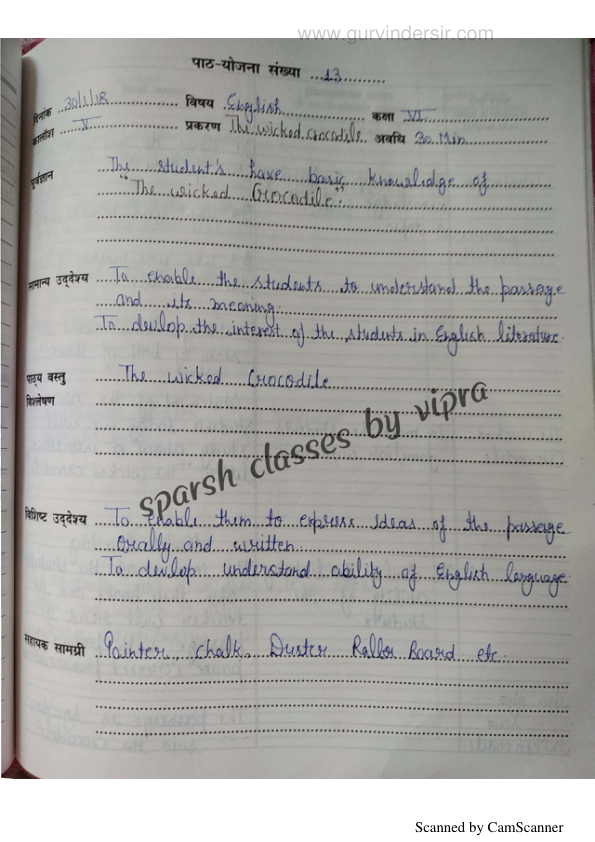 www.gurvindersir.com
पाठ-योजना संख्या ....13..........
दिनांक ..30/1/18................. विषय .English........................ कक्षा ...VI...........................
कालांश .....V..................... प्रकरण The wicked crocodile. अवधि 30 Min.
पूर्वज्ञान The student's have basic knowledge of
"The wicked Crocodile".
सामान्य उद्देश्य To enable the students to understand the passage
and its meaning.
To devlop the interest of the students in English literature.
पाठ्य वस्तु The wicked Crocodile
विश्लेषण
sparsh classes by vipra
विशिष्ट उद्देश्य To enable them to express ideas of the passage
Orally and written.
To devlop understand ability of English language.
सहायक सामग्री Pointer, chalk, Duster Roller Board etc.
Scanned by CamScanner